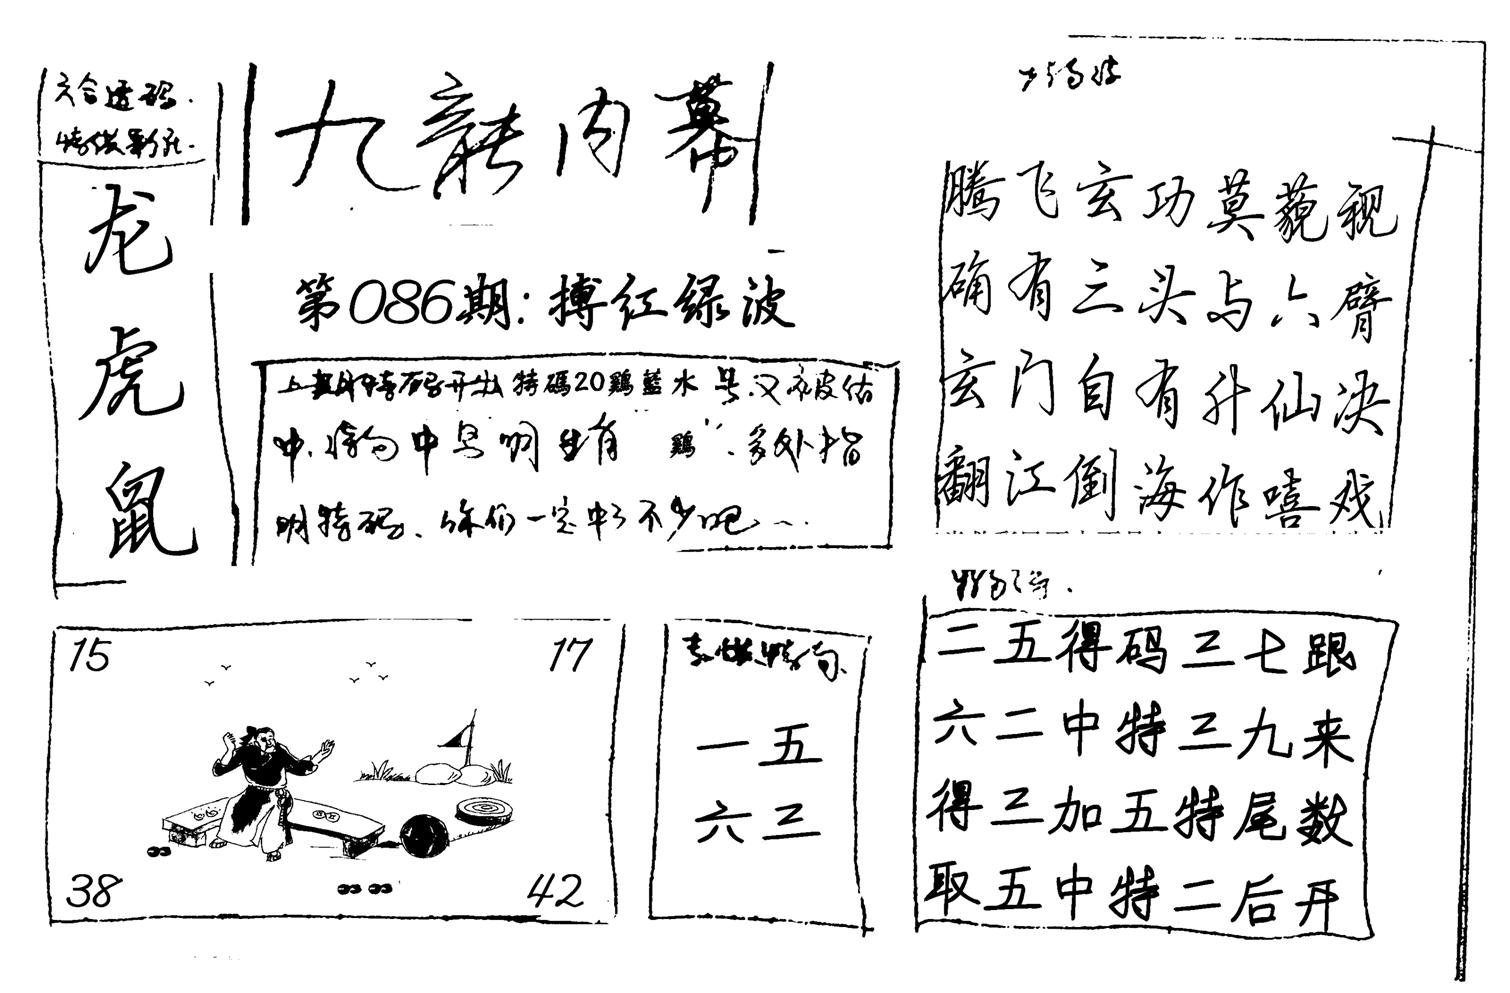 六合透码.
龙
虎
鼠
九龍内幕
第086期:搏红绿波
上期特码开出特碼20鷄藍水 号.又被估
中.特句中 明 有“鷄”.多外指
明特码、你们一定中了不少吧
腾飞玄功莫藐视
确有三头与六臂
玄门自有升仙决
翻江倒海作嘻戏
15
17
38
42
一五
六三
二五得码三七跟
六二中特三九来
得三加五特尾数
取五中特二后开